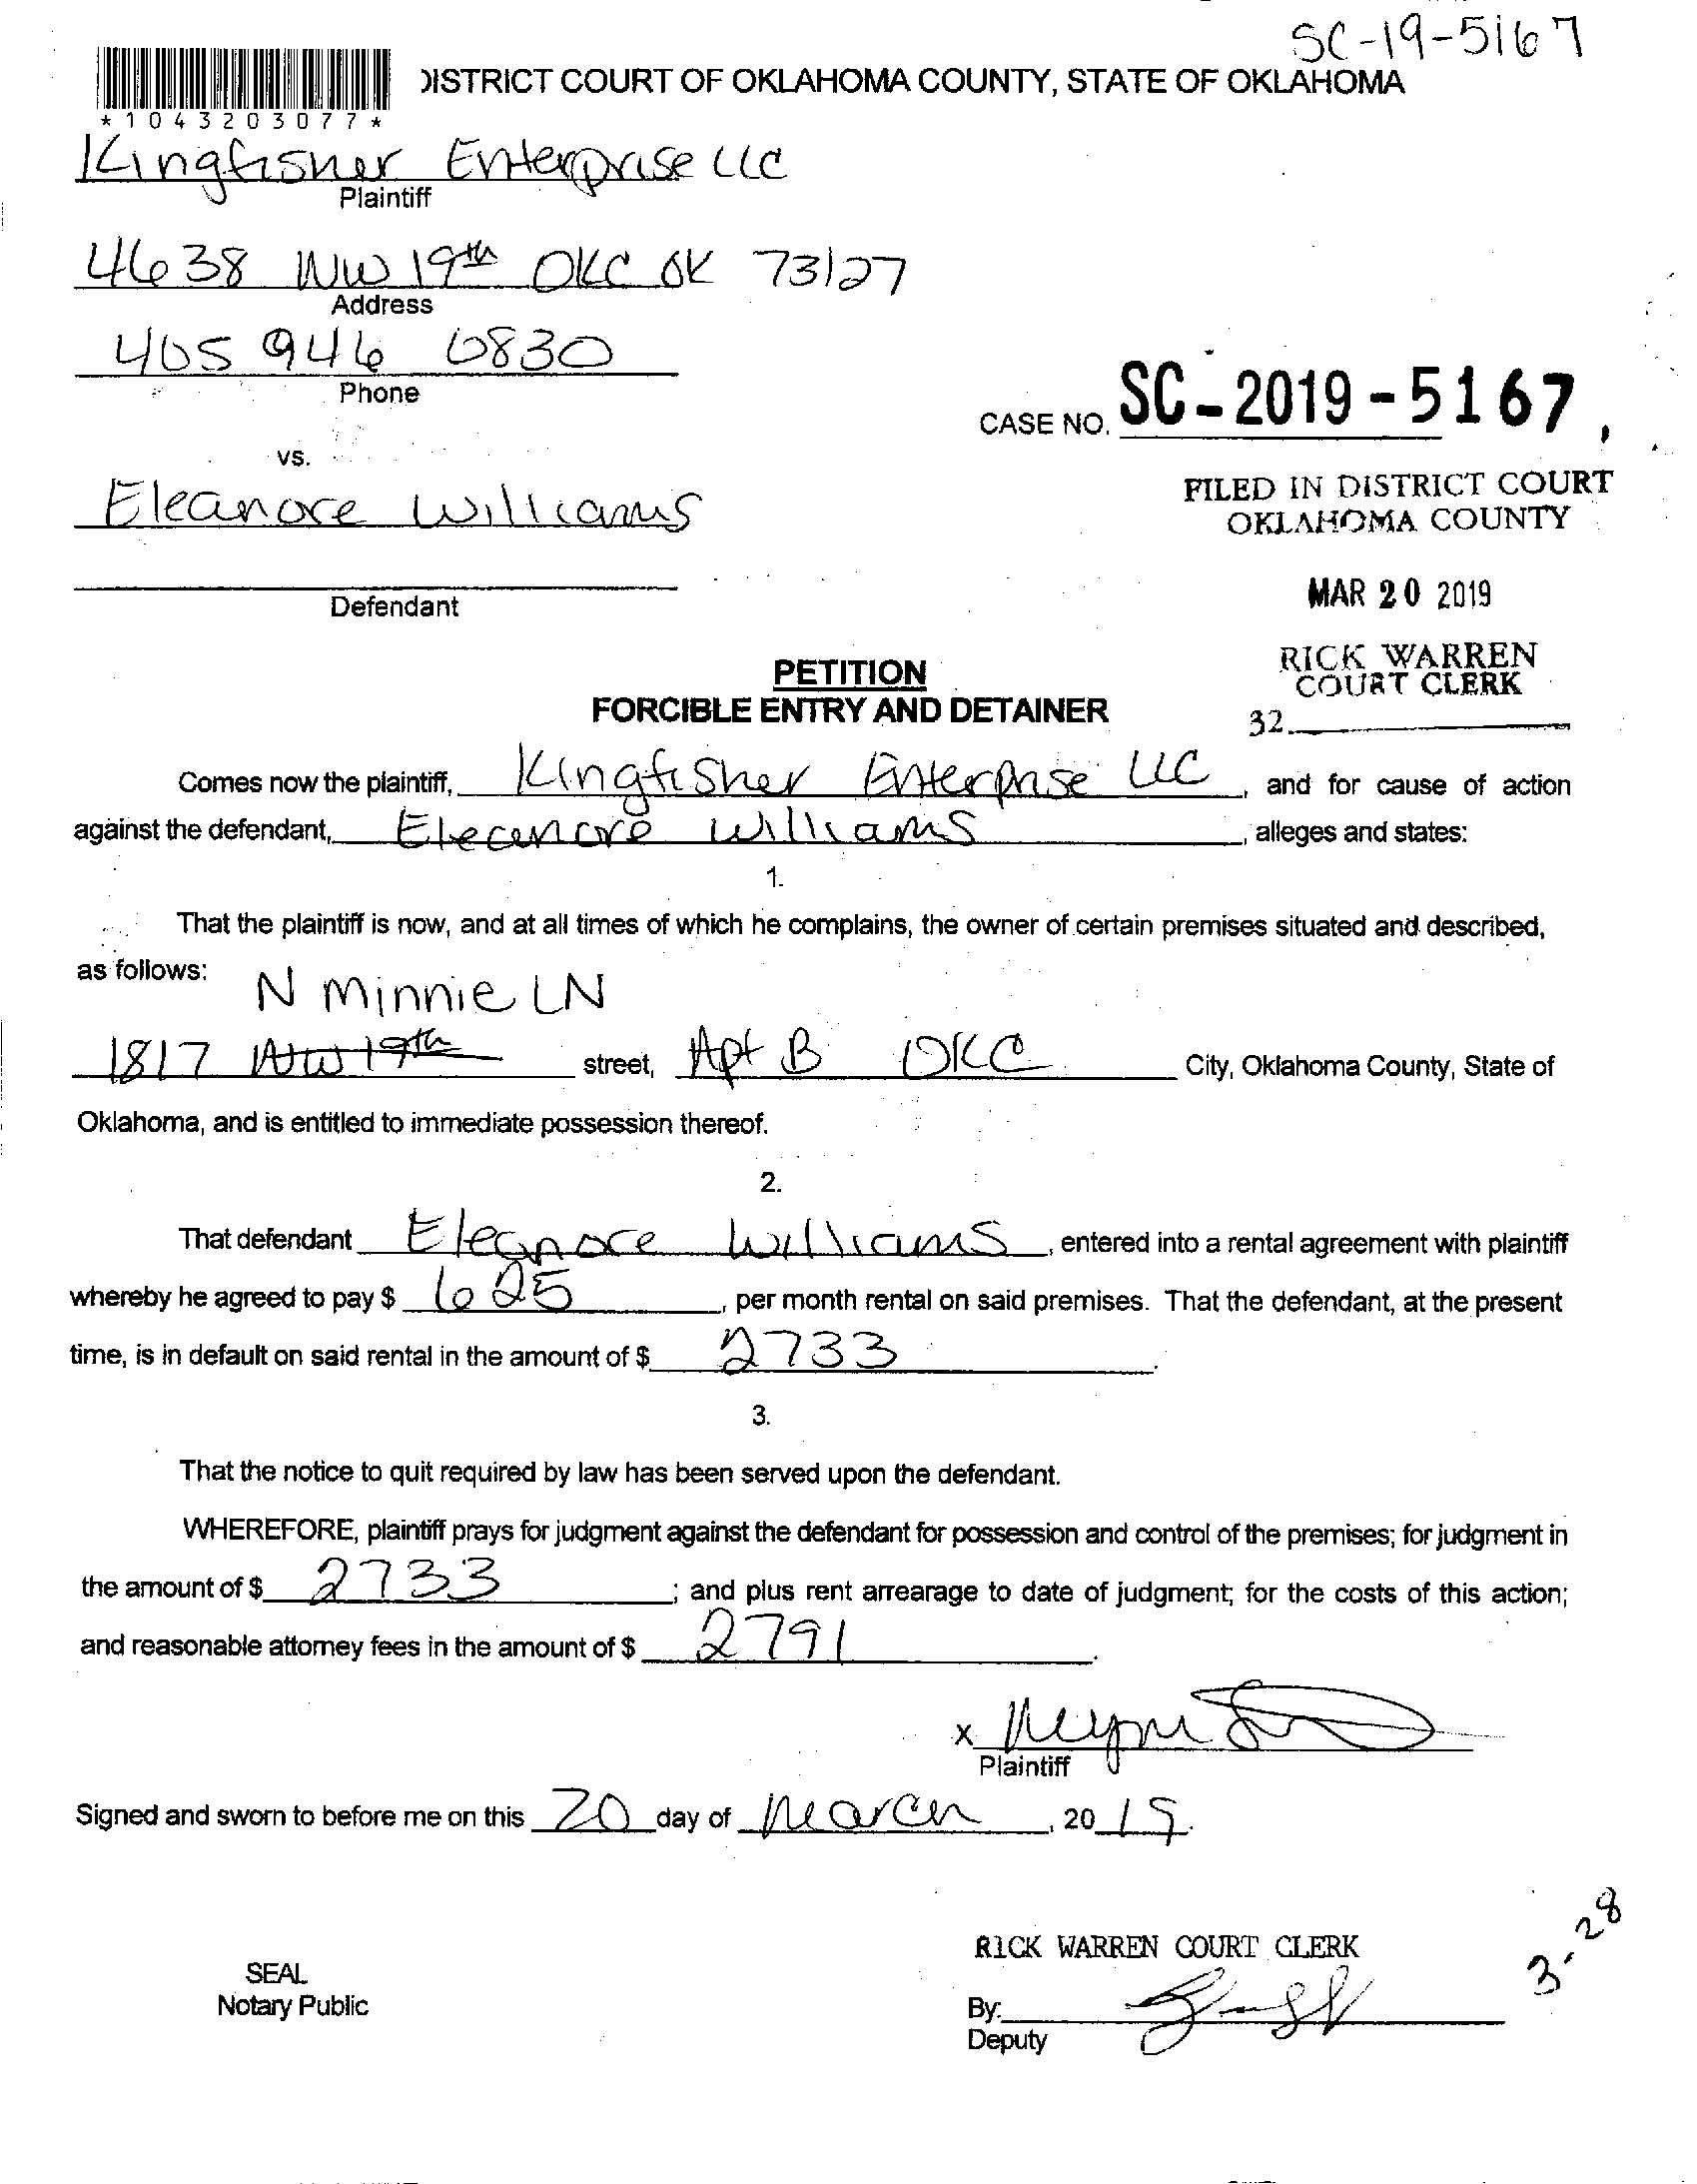 SC-19-5167
DISTRICT COURT OF OKLAHOMA COUNTY, STATE OF OKLAHOMA
*1043203077*
Kingfisher Enterprise LLC
Plaintiff
4638 NW 19th OKC OK 73127
Address
405 946 0830
Phone
CASE NO. SC-2019-5167,
vs.
Eleanore Williams
FILED IN DISTRICT COURT
OKLAHOMA COUNTY
Defendant
MAR 20 2019
RICK WARREN
COURT CLERK
32
PETITION
FORCIBLE ENTRY AND DETAINER
Comes now the plaintiff, Kingfisher Enterprise LLC, and for cause of action
against the defendant, Eleanore Williams, alleges and states:
1.
That the plaintiff is now, and at all times of which he complains, the owner of certain premises situated and described,
as follows:
N Minnie LN
1817 NW 19th street, Apt B OKC City, Oklahoma County, State of
Oklahoma, and is entitled to immediate possession thereof.
2.
That defendant Eleanore Williams, entered into a rental agreement with plaintiff
whereby he agreed to pay $ 625, per month rental on said premises. That the defendant, at the present
time, is in default on said rental in the amount of $ 2733.
3.
That the notice to quit required by law has been served upon the defendant.
WHEREFORE, plaintiff prays for judgment against the defendant for possession and control of the premises; for judgment in
the amount of $ 2733; and plus rent arrearage to date of judgment; for the costs of this action;
and reasonable attorney fees in the amount of $ 2791.
X
Plaintiff
Signed and sworn to before me on this 20 day of March, 2019.
3-28
RICK WARREN COURT CLERK
SEAL
Notary Public
By:
Deputy